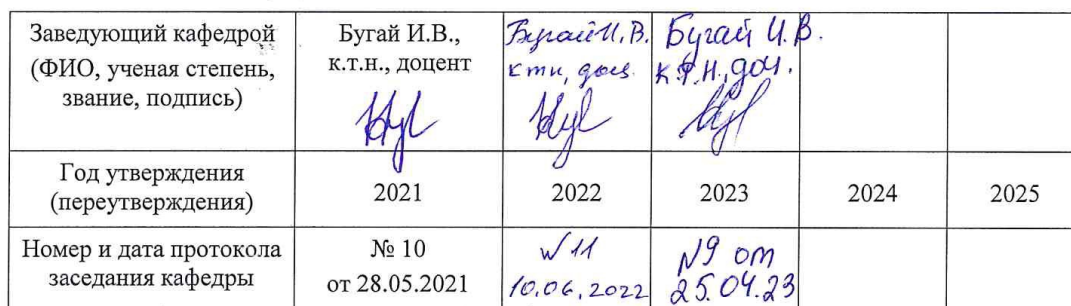 Заведующий кафедрой
(ФИО, ученая степень,
звание, подпись)
Бугай И.В.,
к.т.н., доцент
Бугай И.В.
ктн, доц.
Бугай И.В.
к.т.н., доц.
Год утверждения
(переутверждения)
2021
2022
2023
2024
2025
Номер и дата протокола
заседания кафедры
№ 10
от 28.05.2021
№ 11
10.06.2022
№9 от
25.04.23